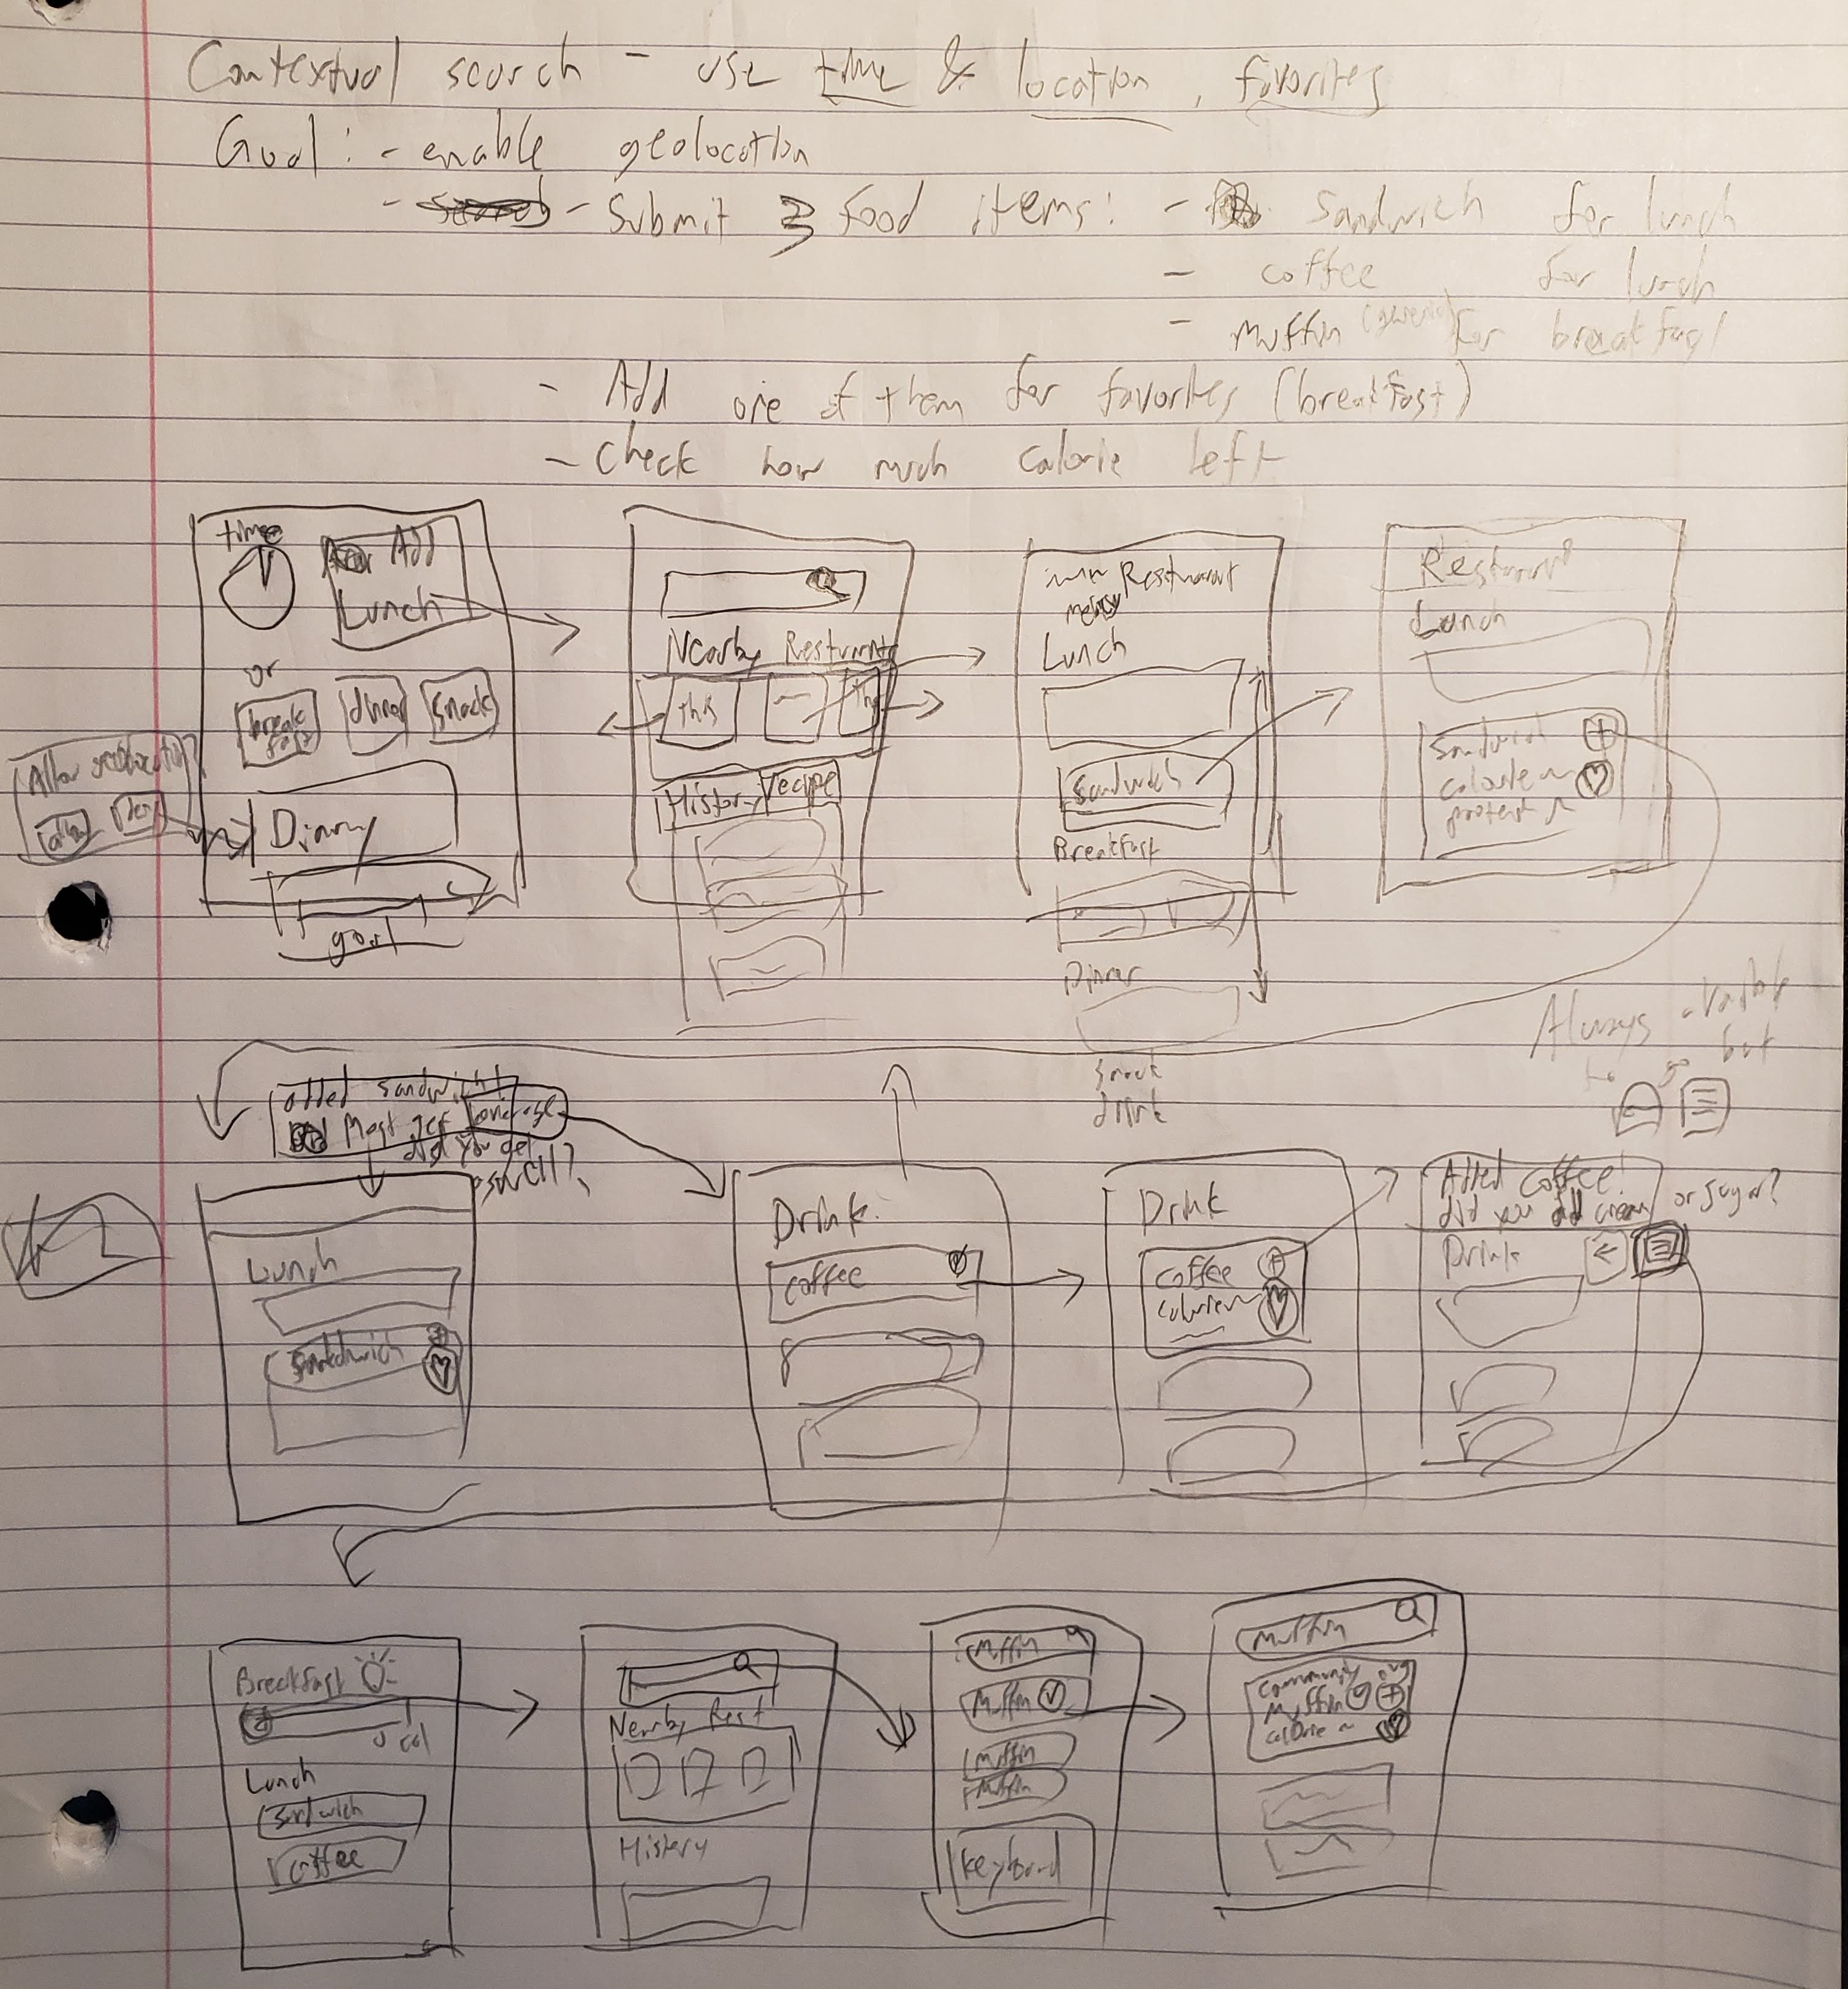 Contextual search - use time & location, favorites
Goal: - enable geolocation
- Submit 3 food items: - Sandwich for lunch
- coffee for lunch
- muffin for breakfast
- Add one of them for favorites (breakfast)
- Check how much calorie left
time
Add
Lunch
or
break
fast
dinner
snack
Allow geolocation?
allow deny
goal
Nearby Restaurants
this
History
recipe
Restaurant
menu
Lunch
Sandwich
Breakfast
Dinner
snack
drink
Restaurant
Lunch
Sandwich +
calorie ~
protein ~
Always available
but
added sandwich!
Most get beverage
did you get
Lunch
Sandwich +
Drink
coffee
Drink
coffee +
calorie ~
Added coffee!
did you add cream or sugar?
Drink
Breakfast
0 cal
Lunch
Sandwich
Coffee
Nearby Rest
History
Muffin
Muffin
Muffin
Muffin
keyboard
Muffin
community avg
Muffin +
calorie ~